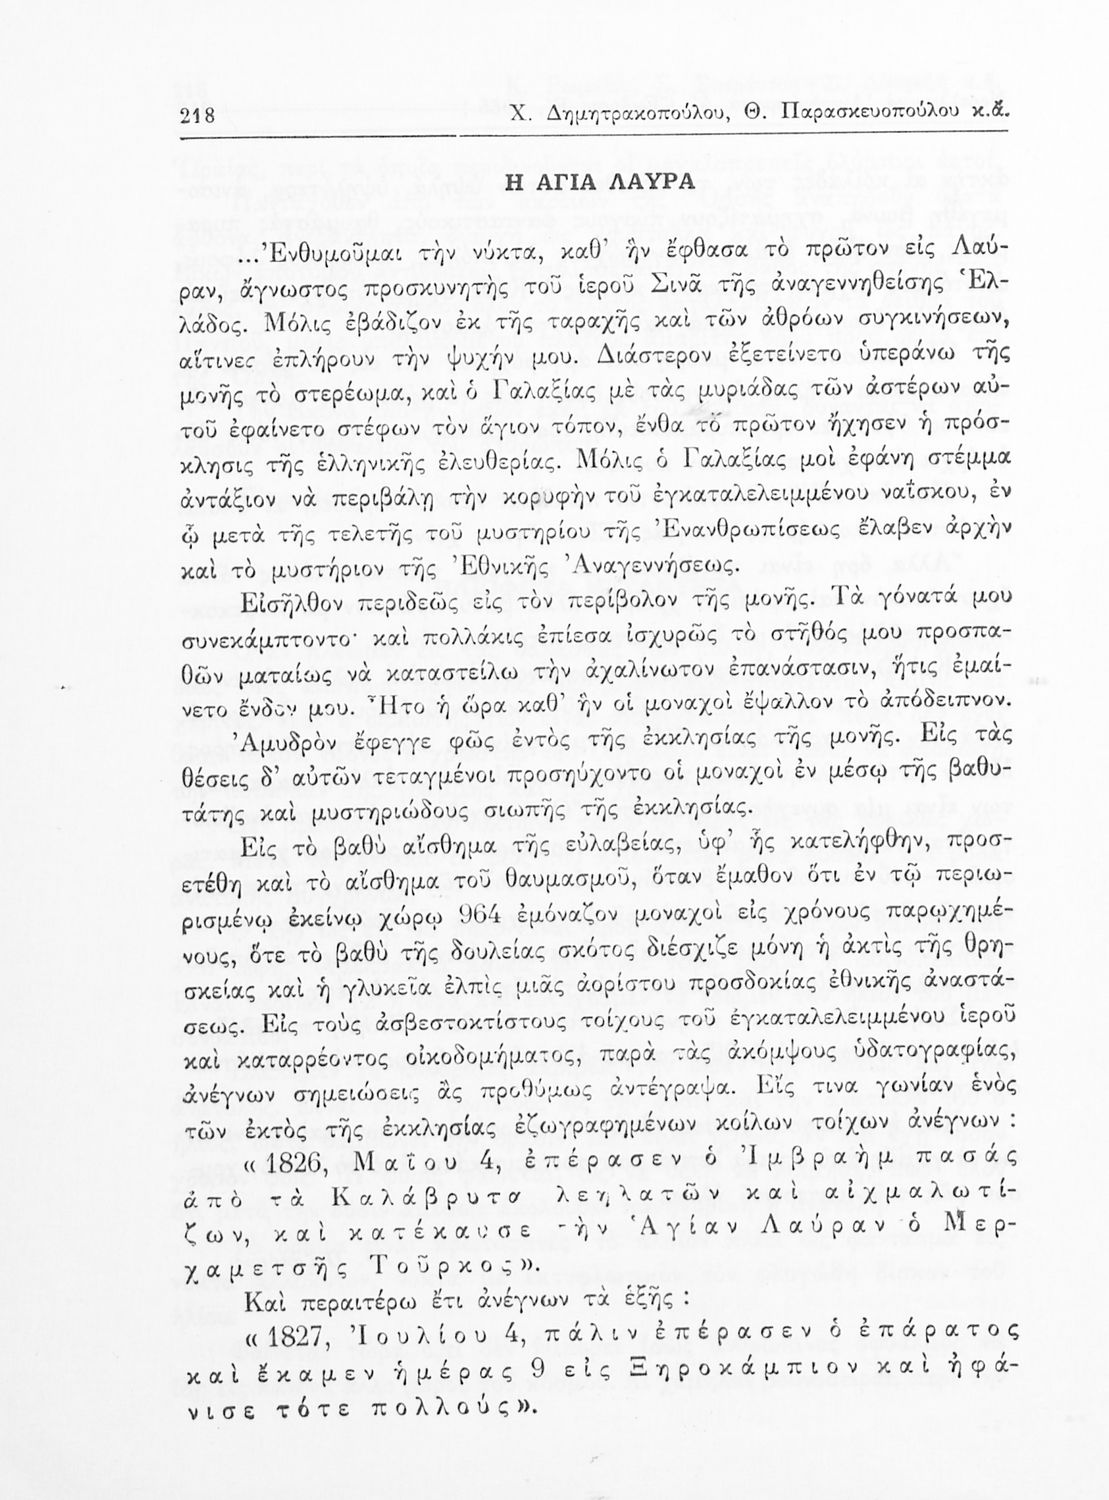 218
Χ. Δημητρακοπούλου, Θ. Παρασκευοπούλου κ.ἄ.
Η ΑΓΙΑ ΛΑΥΡΑ
...Ἐνθυμοῦμαι τὴν νύκτα, καθ’ ἣν ἔφθασα τὸ πρῶτον εἰς Λαύ-
ραν, ἄγνωστος προσκυνητὴς τοῦ ἱεροῦ Σινᾶ τῆς ἀναγεννηθείσης Ἑλ-
λάδος. Μόλις ἐβάδιζον ἐκ τῆς ταραχῆς καὶ τῶν ἀθρόων συγκινήσεων,
αἵτινες ἐπλήρουν τὴν ψυχήν μου. Διάστερον ἐξετείνετο ὑπεράνω τῆς
μονῆς τὸ στερέωμα, καὶ ὁ Γαλαξίας μὲ τὰς μυριάδας τῶν ἀστέρων αὐ-
τοῦ ἐφαίνετο στέφων τὸν ἅγιον τόπον, ἔνθα τὸ πρῶτον ἤχησεν ἡ πρόσ-
κλησις τῆς ἑλληνικῆς ἐλευθερίας. Μόλις ὁ Γαλαξίας μοὶ ἐφάνη στέμμα
ἀντάξιον νὰ περιβάλῃ τὴν κορυφὴν τοῦ ἐγκαταλελειμμένου ναΐσκου, ἐν
ᾧ μετὰ τῆς τελετῆς τοῦ μυστηρίου τῆς Ἐνανθρωπίσεως ἔλαβεν ἀρχὴν
καὶ τὸ μυστήριον τῆς Ἐθνικῆς Ἀναγεννήσεως.
Εἰσῆλθον περιδεῶς εἰς τὸν περίβολον τῆς μονῆς. Τὰ γόνατά μου
συνεκάμπτοντο· καὶ πολλάκις ἐπίεσα ἰσχυρῶς τὸ στῆθός μου προσπα-
θῶν ματαίως νὰ καταστείλω τὴν ἀχαλίνωτον ἐπανάστασιν, ἥτις ἐμαί-
νετο ἔνδον μου. Ἦτο ἡ ὥρα καθ’ ἣν οἱ μοναχοὶ ἔψαλλον τὸ ἀπόδειπνον.
Ἀμυδρὸν ἔφεγγε φῶς ἐντὸς τῆς ἐκκλησίας τῆς μονῆς. Εἰς τὰς
θέσεις δ’ αὐτῶν τεταγμένοι προσηύχοντο οἱ μοναχοὶ ἐν μέσῳ τῆς βαθυ-
τάτης καὶ μυστηριώδους σιωπῆς τῆς ἐκκλησίας.
Εἰς τὸ βαθὺ αἴσθημα τῆς εὐλαβείας, ὑφ’ ἧς κατελήφθην, προσ-
ετέθη καὶ τὸ αἴσθημα τοῦ θαυμασμοῦ, ὅταν ἔμαθον ὅτι ἐν τῷ περιω-
ρισμένῳ ἐκείνῳ χώρῳ 964 ἐμόναζον μοναχοὶ εἰς χρόνους παρῳχημέ-
νους, ὅτε τὸ βαθὺ τῆς δουλείας σκότος διέσχιζε μόνη ἡ ἀκτὶς τῆς θρη-
σκείας καὶ ἡ γλυκεῖα ἐλπὶς μιᾶς ἀορίστου προσδοκίας ἐθνικῆς ἀναστά-
σεως. Εἰς τοὺς ἀσβεστοκτίστους τοίχους τοῦ ἐγκαταλελειμμένου ἱεροῦ
καὶ καταρρέοντος οἰκοδομήματος, παρὰ τὰς ἀκόμψους ὑδατογραφίας,
ἀνέγνων σημειώσεις ἃς προθύμως ἀντέγραψα. Εἴς τινα γωνίαν ἑνὸς
τῶν ἐκτὸς τῆς ἐκκλησίας ἐζωγραφημένων κοίλων τοίχων ἀνέγνων :
« 1826, Μαΐου 4, ἐπέρασεν ὁ Ἰμβραὴμ πασάς
ἀπὸ τὰ Καλάβρυτα λεηλατῶν καὶ αἰχμαλωτί-
ζων, καὶ κατέκαυσε τὴν Ἁγίαν Λαύραν ὁ Μερ-
χαμετσῆς Τοῦρκος».
Καὶ περαιτέρω ἔτι ἀνέγνων τὰ ἑξῆς :
« 1827, Ἰουλίου 4, πάλιν ἐπέρασεν ὁ ἐπάρατος
καὶ ἔκαμεν ἡμέρας 9 εἰς Ξηροκάμπιον καὶ ἠφά-
νισε τότε πολλούς».